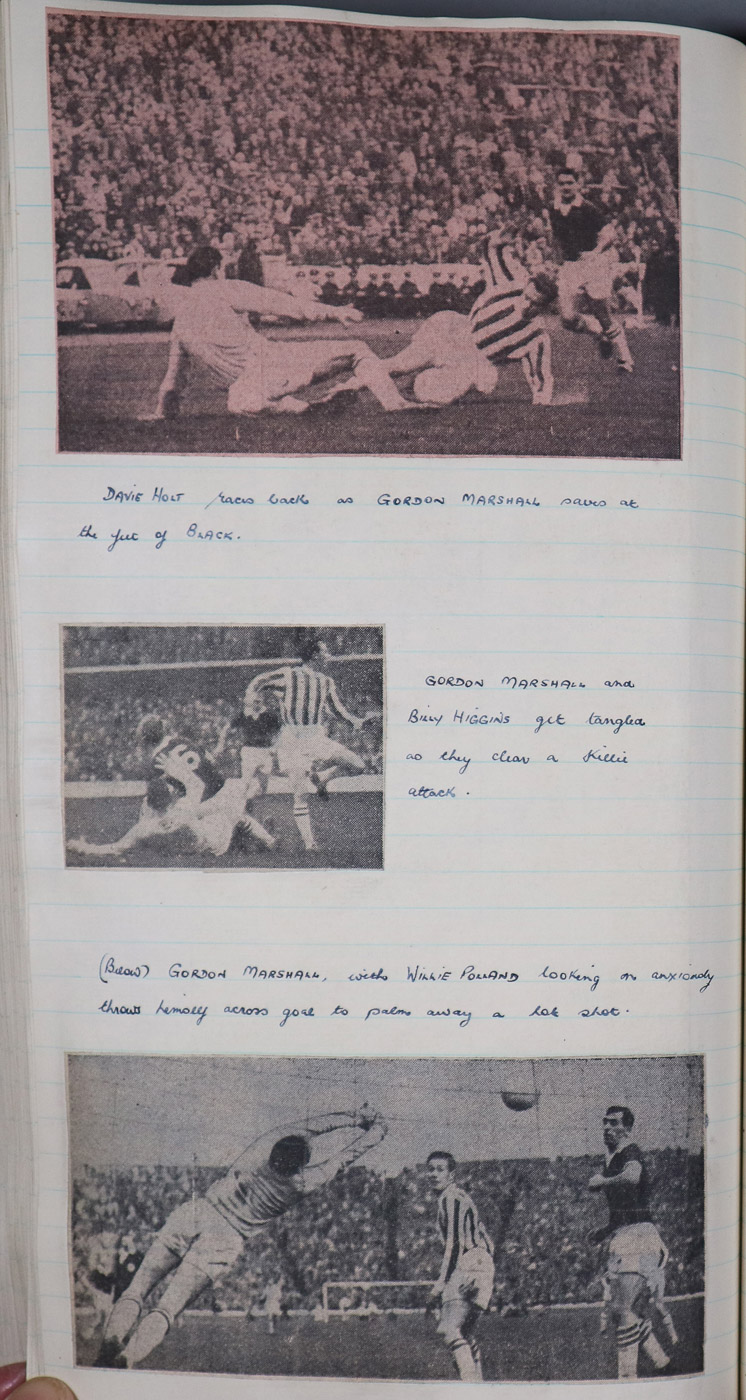 DAVIE HOLT races back as GORDON MARSHALL saves at
the feet of BLACK.
GORDON MARSHALL and
BILLY HIGGINS get tangled
as they clear a Killie
attack.
(Below) GORDON MARSHALL, with WILLIE POLLAND looking on anxiously
throws himself across goal to palm away a hot shot.